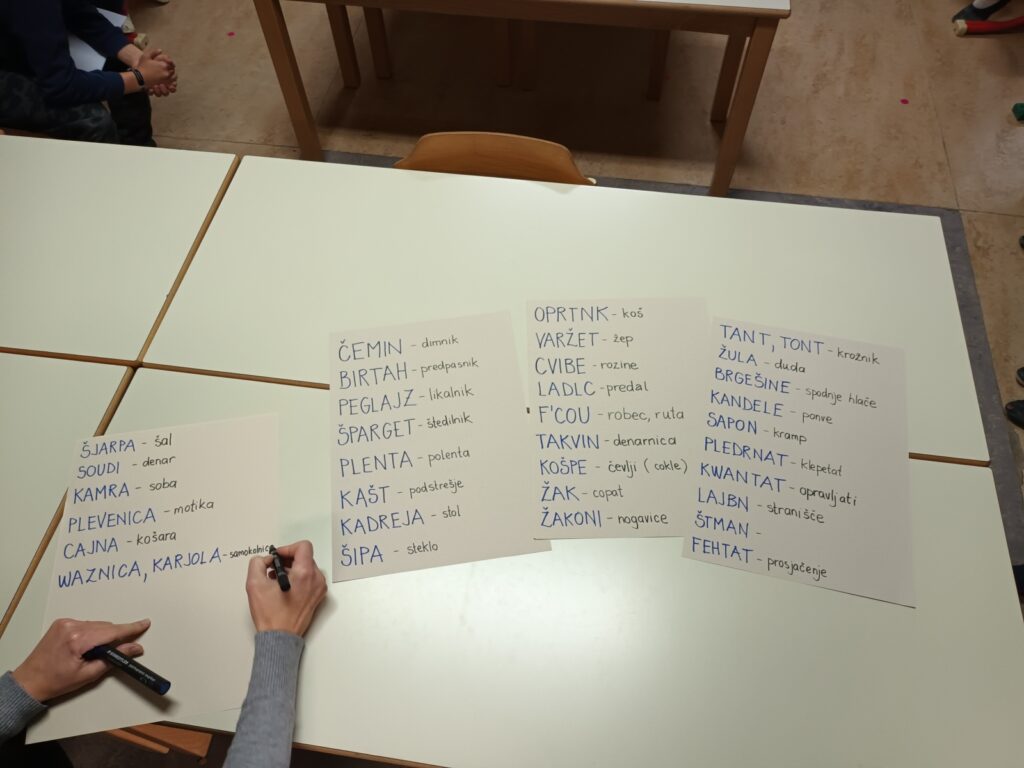 ŠJARPA - šal
SOUDI - denar
KAMRA - soba
PLEVENICA - motika
CAJNA - košara
WAZNICA, KARJOLA - samokolnica
ČEMIN - dimnik
BIRTAH - predpasnik
PEGLAJZ - likalnik
ŠPARGET - štedilnik
PLENTA - polenta
KAŠT - podstrešje
KADREJA - stol
ŠIPA - steklo
OPRTNK - koš
VARŽET - žep
CVIBE - rozine
LADLC - predal
F'COU - robec, ruta
TAKVIN - denarnica
KOŠPE - čevlji (cokle)
ŽAK - copat
ŽAKONI - nogavice
TANT, TONT - krožnik
ŽULA - duda
BRGEŠINE - spodnje hlače
KANDELE - ponve
SAPON - kramp
PLEDRNAT - klepetat
KWANTAT - opravljati
LAJBN - stranišče
ŠTMAN -
FEHTAT - prosjačenje